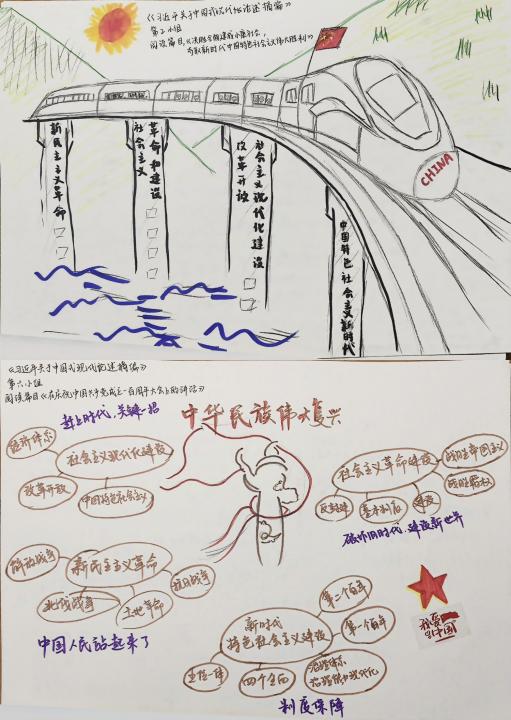 《习近平关于中国式现代化论述摘编》
第二小组
阅读篇目《决胜全面建成小康社会，
夺取新时代中国特色社会主义伟大胜利》
CHINA
新民主主义革命
社会主义
革命和建设
改革开放
社会主义现代化建设
中国特色社会主义新时代
《习近平关于中国式现代化论述摘编》
第六小组
阅读篇目《在庆祝中国共产党成立一百周年大会上的讲话》
赶上时代，关键一招
中华民族伟大复兴
经济体系
社会主义现代化建设
改革开放
中国特色社会主义
社会主义革命建设
战胜帝国主义
战胜霸权
建设
基本制度
破坏旧时代，建设新世界
解放战争
新民主主义革命
抗日战争
北伐战争
土地革命
中国人民站起来了
新时代
特色社会主义建设
第二个百年
第一个百年
五位一体
四个全面
治理体系
治理能力现代化
制度保障
我爱
中国